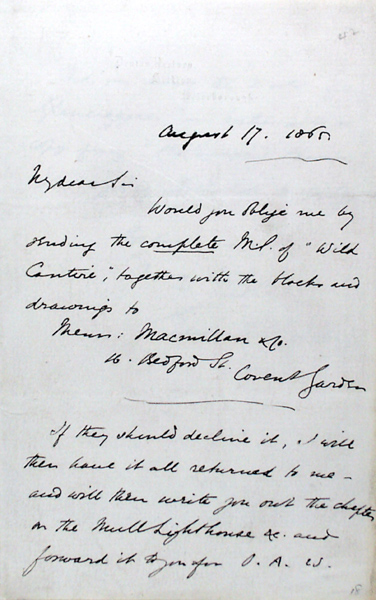 August 17. 1865
My dear Sir
Would you oblige me by
sending the complete M.S. of "Wild
Cantire", together with the blocks and
drawings to
Messrs: Macmillan & Co.
16. Bedford St.
Covent Garden
If they should decline it, I will
then have it all returned to me –
and will then write you out the chapter
on the Mull Lighthouse &c. and
forward it to you for O. A. W.